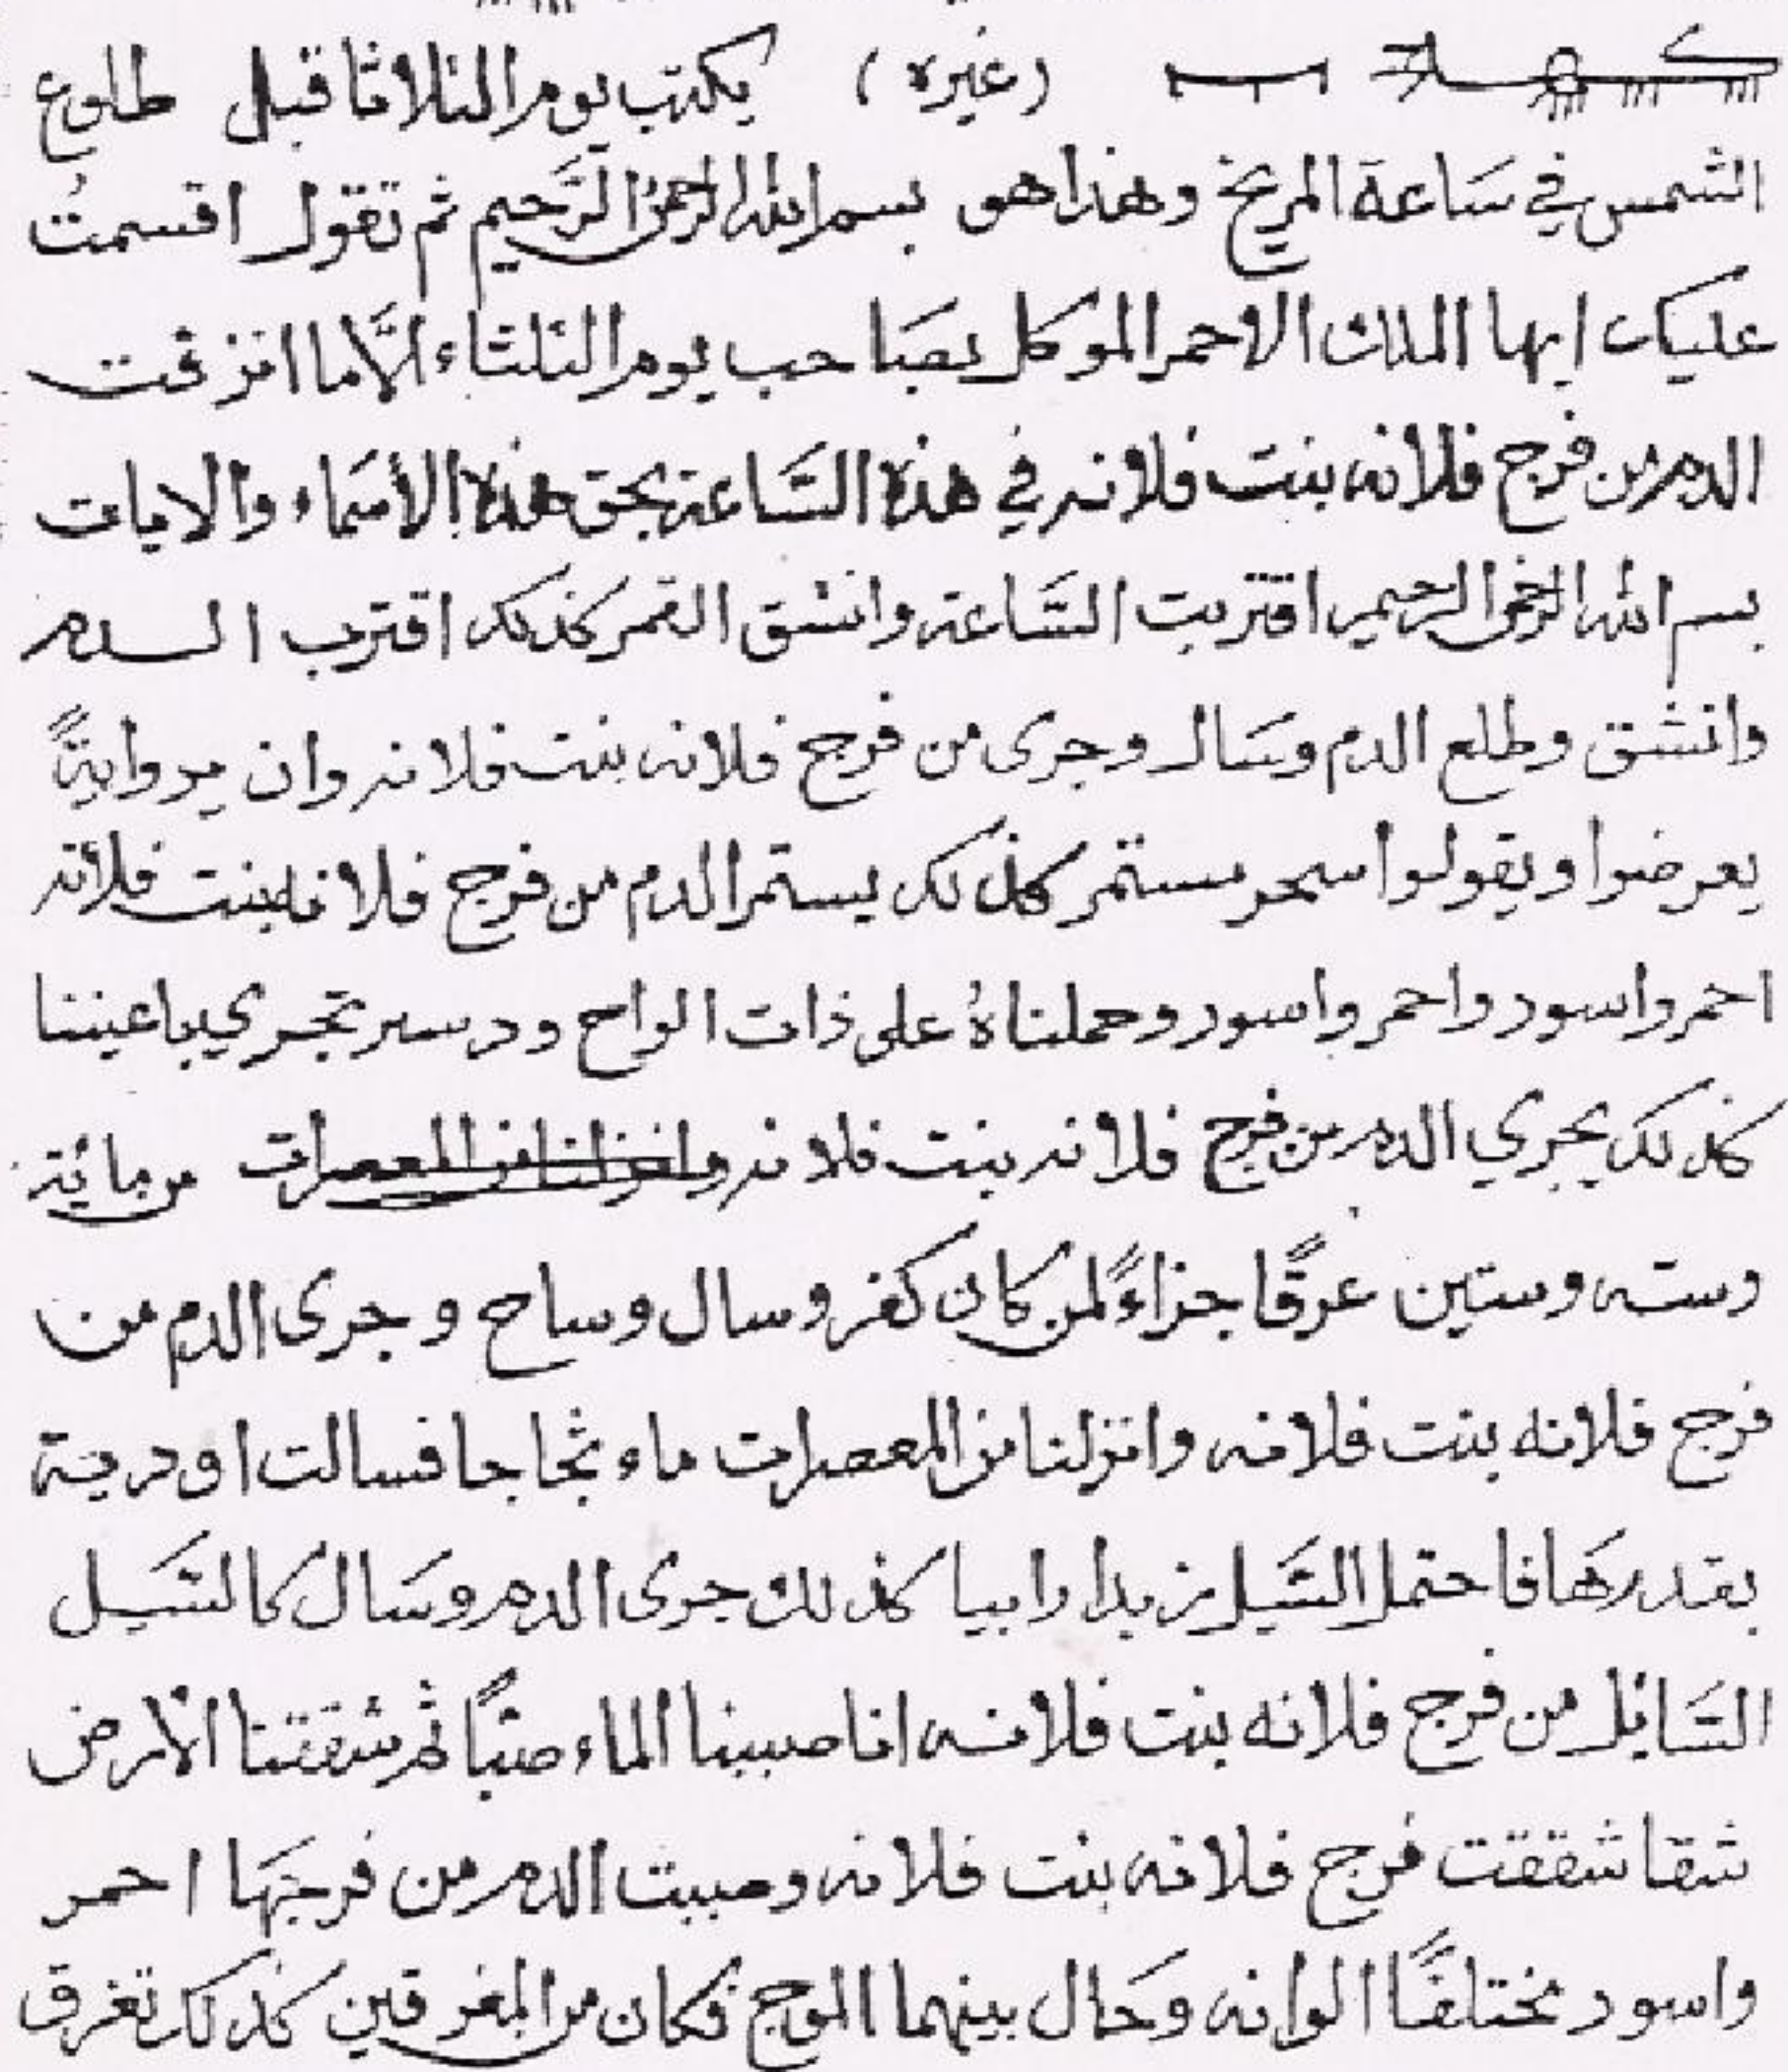 (غيره) يكتب يوم الثلاثا قبل طلوع
الشمس في سَاعة المريخ وهذا هو بسم الله الرحمن الرَّحيم ثم تقول اقسمتُ
عليك ايها الملك الاحمر الموكل بصَاحب يوم الثلثاء الَّا ما انزفت
الدم من فرج فلانه بنت فلانه في هذه السَّاعة بحق هذه الأسمَاء والايات
بسم الله الرحمن الرحيم اقتربت السَّاعة وانشق القمر كذلك اقترب الـدم
وانشق وطلع الدم وسَال وجرى من فرج فلانه بنت فلانه وان يروا ايةً
يعرضوا ويقولوا سحر مستمر كذلك يستمر الدم من فرج فلانه بنت فلانه
احمر واسود واحمر واسود وحملناهُ على ذات الواح ودسر تجري باعيننا
كذلك يجري الدم من فرج فلانه بنت فلانه وانزلنا من المعصرات من مائة
وسته وستين عرقًا جزاءً لمن كان كفر وسال وساح وجرى الدم من
فرج فلانه بنت فلانه وانزلنا من المعصرات ماء ثجاجا فسالت اودية
بقدرهَا فاحتمل السَّيل زبدا رابيا كذلك جرى الدم وسَال كالسَّيل
السَّايل من فرج فلانه بنت فلانه انا صببنا الماء صبًّا ثم شققنا الأرض
شقا شققت فرج فلانه بنت فلانه وصببت الدم من فرجهَا احمر
واسود مختلفًا الوانه وحَال بينهما الموج فكان من المغرقين كذلك تغرق